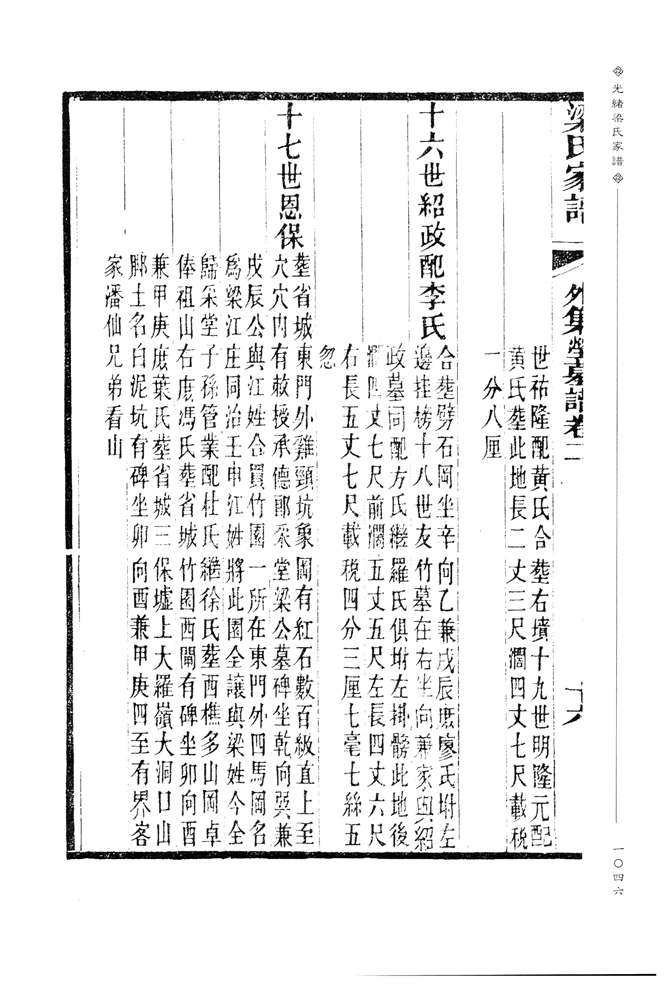 光緒梁氏家譜
一〇四六
梁氏家譜 外集塋墓譜卷二 十六
世祐隆配黃氏合塟右墳十九世明隆元配
黃氏塟此地長二丈三尺濶四丈七尺載稅
一分八厘
十六世紹政配李氏
合塟劈石岡坐辛向乙兼戌辰庶廖氏坿左
邊挂榜十八世友竹墓在右坐向兼家與紹
政墓同配方氏繼羅氏俱坿左掛髈此地後
濶四丈七尺前濶五丈五尺左長四丈六尺
右長五丈七尺載稅四分三厘七毫七絲五
忽
十七世恩保
塟省城東門外雞頸坑象岡有紅石數百級直上至
穴穴內有敕授承德郎采堂梁公墓碑坐乾向巽兼
戌辰公與江姓合買竹園一所在東門外四馬岡名
爲梁江庄同治壬申江姓將此園全讓與梁姓今全
歸采堂子孫管業配杜氏繼徐氏塟西樵多山岡卓
俸祖山右庶馮氏塟省城竹園西閘有碑坐卯向酉
兼甲庚庶葉氏塟省城三保墟上大羅嶺大洞口山
脚土名白泥坑有碑坐卯向酉兼甲庚四至有界客
家潘仙兄弟看山